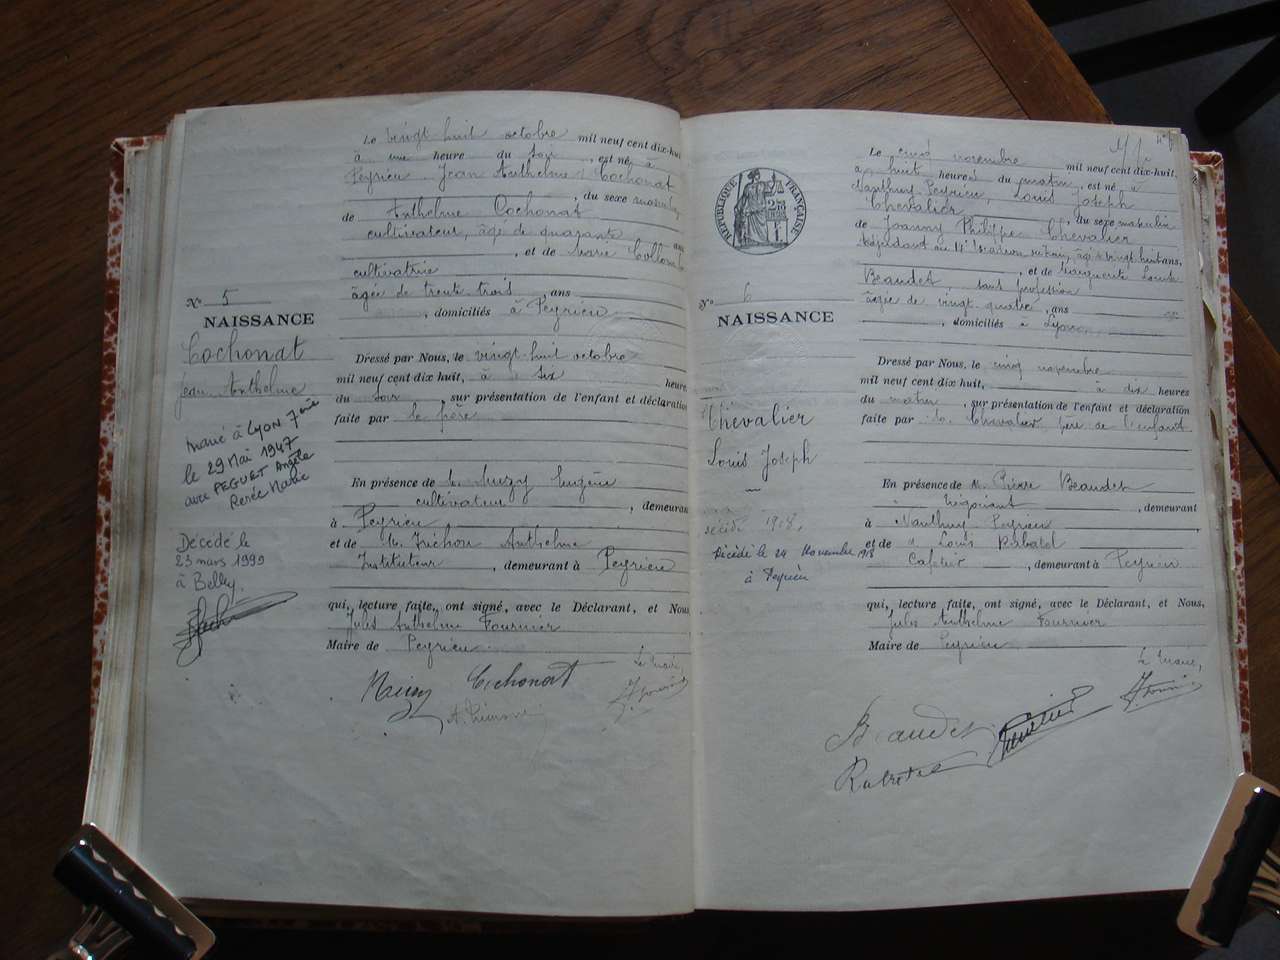 Le vingt-huit octobre mil neuf cent dix-huit
à une heure du soir, est né à
Peyrieu Jean Anthelme Cochonat
, du sexe masculin
de Anthelme Cochonat
cultivateur, âgé de quarante ans
, et de Marie Collomb
cultivatrice
âgée de trente-trois, ans
, domiciliés à Peyrieu
N° 5
NAISSANCE
Cochonat
Jean Anthelme
marié à LYON 7ème
le 29 Mai 1947
avec PEGUET Angèle
Renée Marie
Décédé le
23 mars 1999
à Belley.
Dressé par Nous, le vingt-huit octobre
mil neuf cent dix huit, à six heures
du soir, sur présentation de l'enfant et déclaration
faite par le père
En présence de M. Eugène
cultivateur, demeurant
à Peyrieu
et de M. Anthelme
Instituteur, demeurant à Peyrieu
qui, lecture faite, ont signé, avec le Déclarant, et Nous
Jules Anthelme Fournier
Maire de Peyrieu
Le Maire,
Cochonat
RÉPUBLIQUE FRANÇAISE
Le cinq novembre mil neuf cent dix-huit,
à huit heures du matin, est né à
Nanthuy-Peyrieu, Louis Joseph
Chevalier
, du sexe masculin
de Joanny Philippe Chevalier
âgé de vingt-huit ans,
, et de Marguerite Louise
Beaudet, sans profession
âgée de vingt-quatre, ans
, domiciliés à Lyon
N° 6
NAISSANCE
Chevalier
Louis Joseph
décédé 1918,
Décédé le 24 Novembre 1918
à Peyrieu
Dressé par Nous, le cinq novembre
mil neuf cent dix huit, à dix heures
du matin, sur présentation de l'enfant et déclaration
faite par Chevalier, père de l'enfant
En présence de M. Pierre Beaudet
négociant, demeurant
à Nanthuy-Peyrieu
et de Louis Rabatel
Cafetier, demeurant à Peyrieu
qui, lecture faite, ont signé, avec le Déclarant, et Nous,
Jules Anthelme Fournier
Maire de Peyrieu
Le Maire,
Beaudet
Rabatel